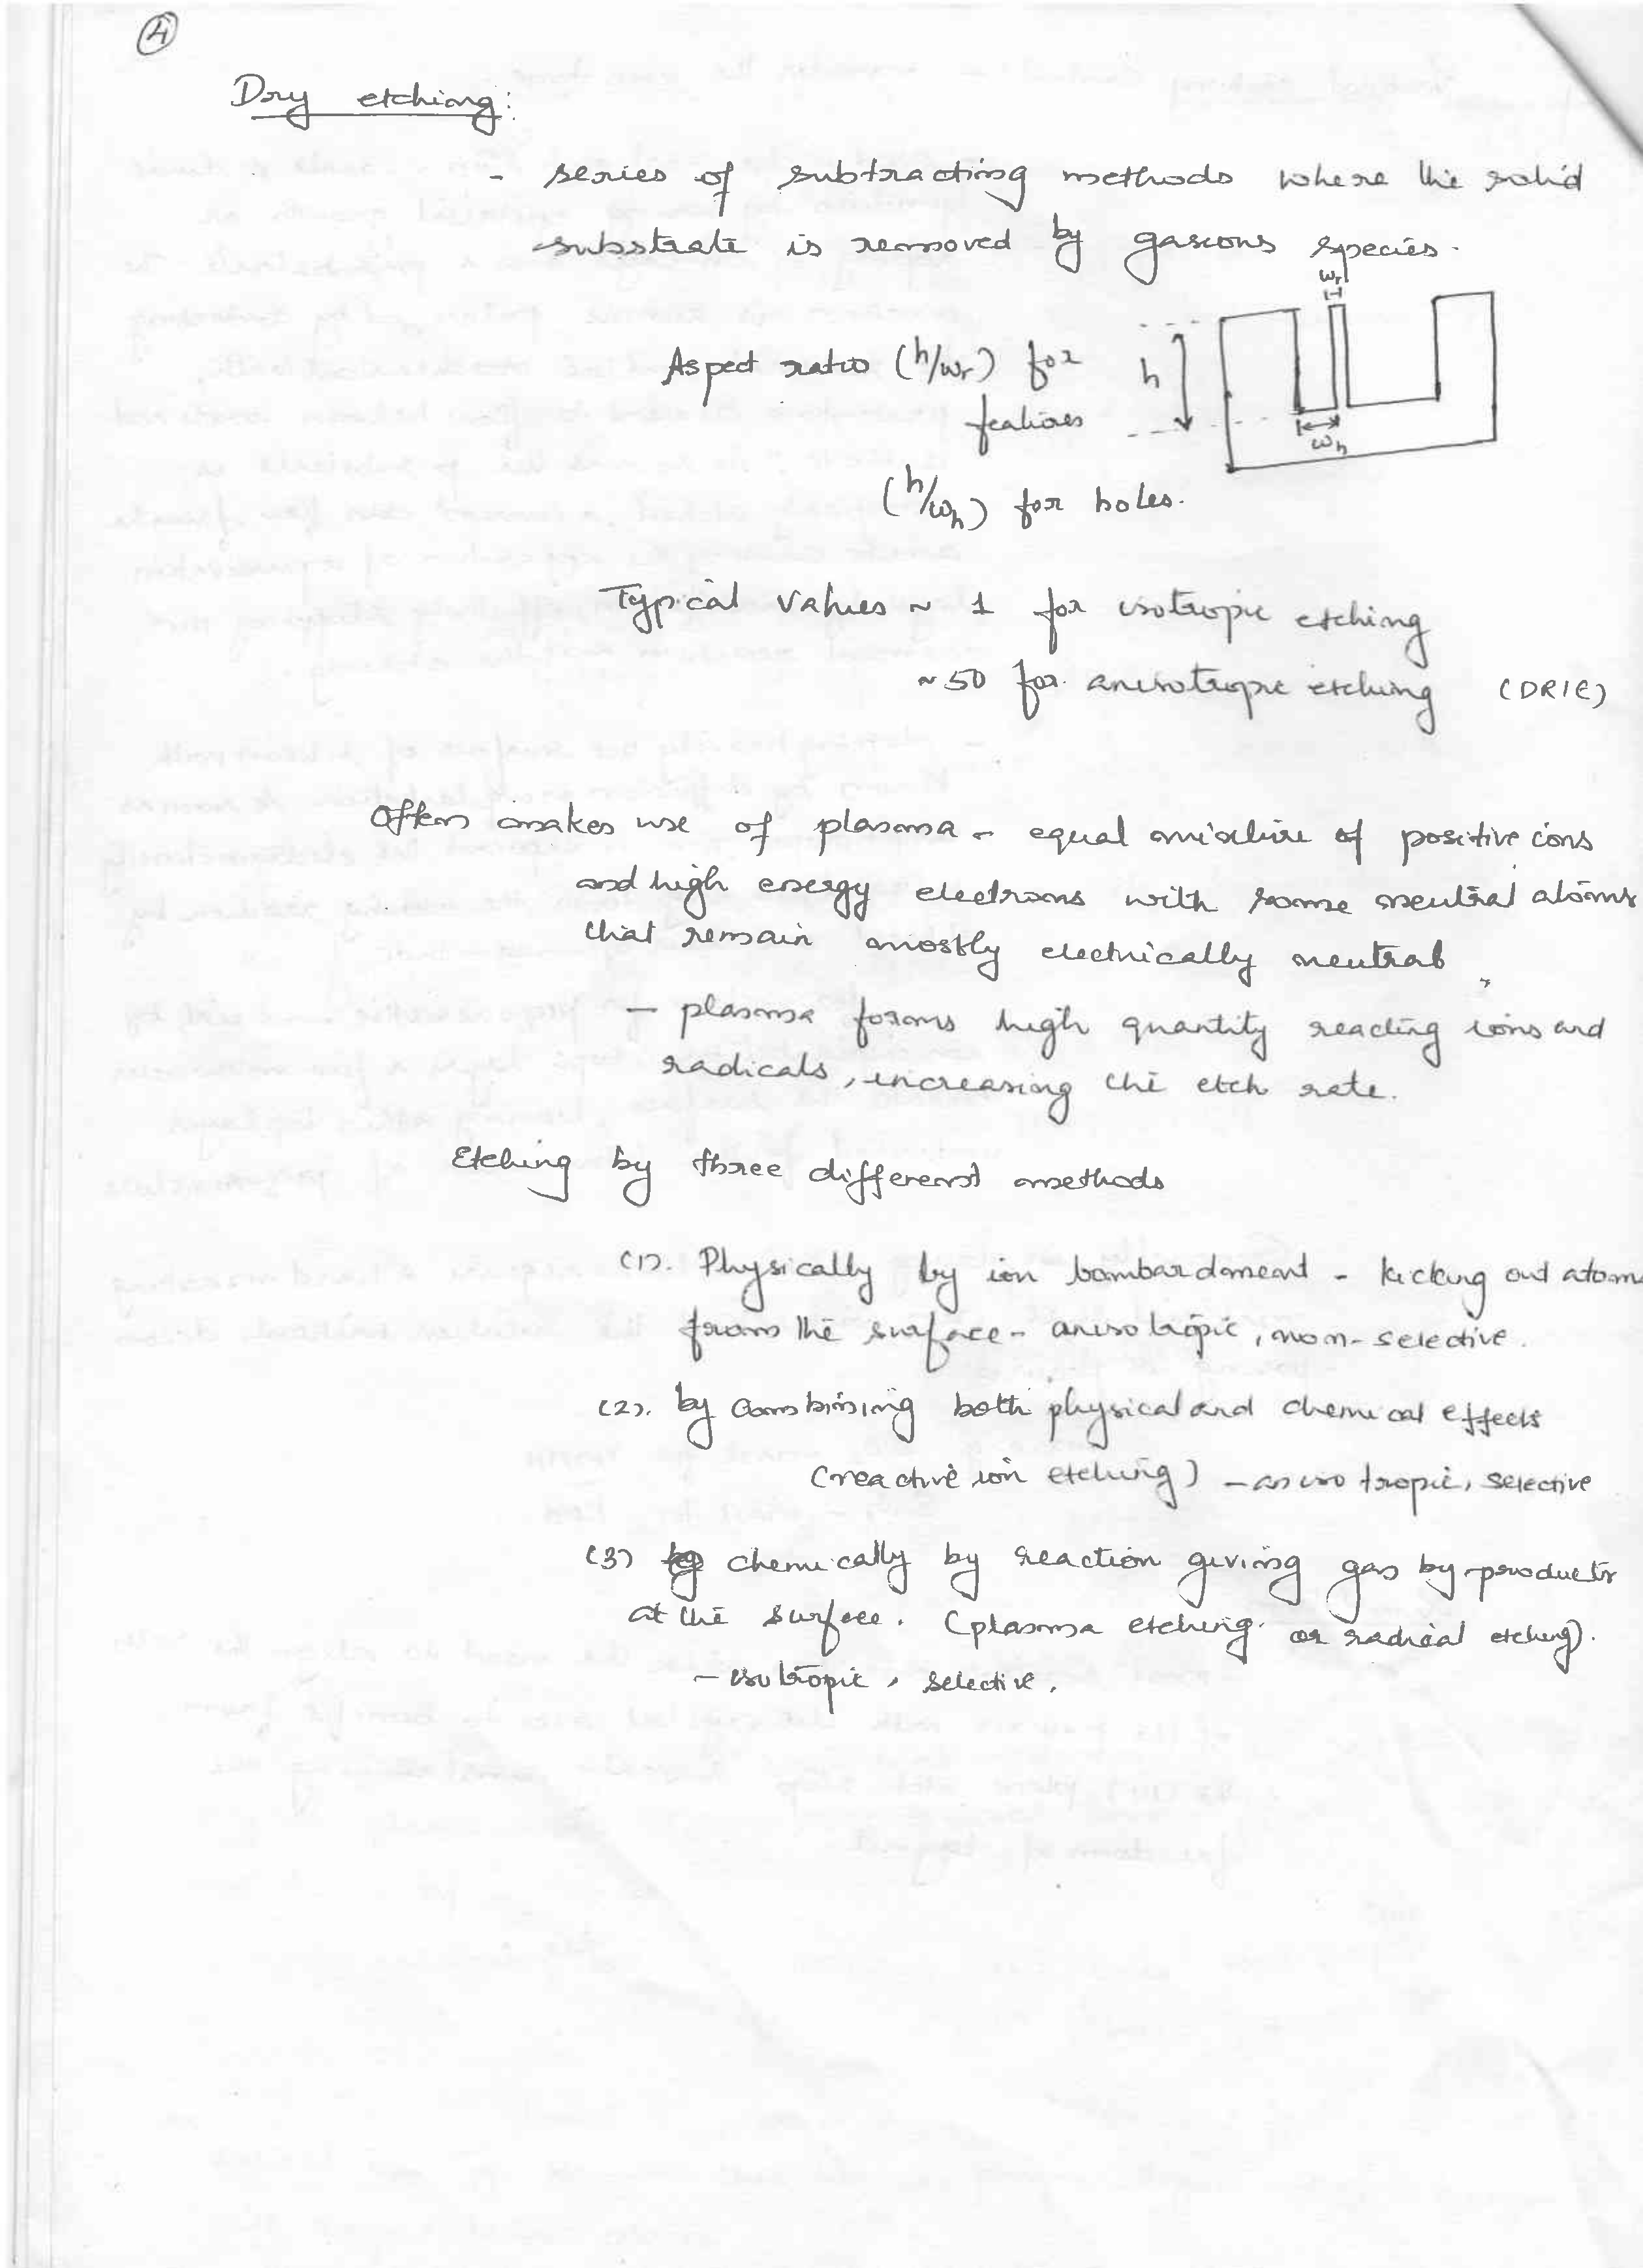 4
Dry etching:
- series of subtracting methods where the solid
substrate is removed by gaseous species.
wr
Aspect ratio (h/wr) for
features
h
wh
(h/wh) for holes.
Typical values ~ 1 for isotropic etching
~ 50 for anisotropic etching (DRIE)
Often makes use of plasma - equal mixture of positive ions
and high energy electrons with some neutral atoms
that remain mostly electrically neutral,
- plasma forms high quantity reacting ions and
radicals, increasing the etch rate.
Etching by three different methods
(1). Physically by ion bombardment - kicking out atoms
from the surface - anisotropic, non-selective.
(2). by combining both physical and chemical effects
(reactive ion etching) - anisotropic, selective
(3) chemically by reaction giving gas by-products
at the surface. (plasma etching or radical etching).
- isotropic, selective.